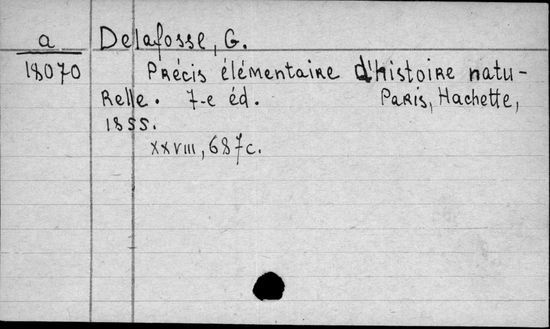 a Delafosse, G.
18070 Précis élémentaire d'histoire natu-
relle. 7-e éd. Paris, Hachette,
1855.
XXVIII, 687c.